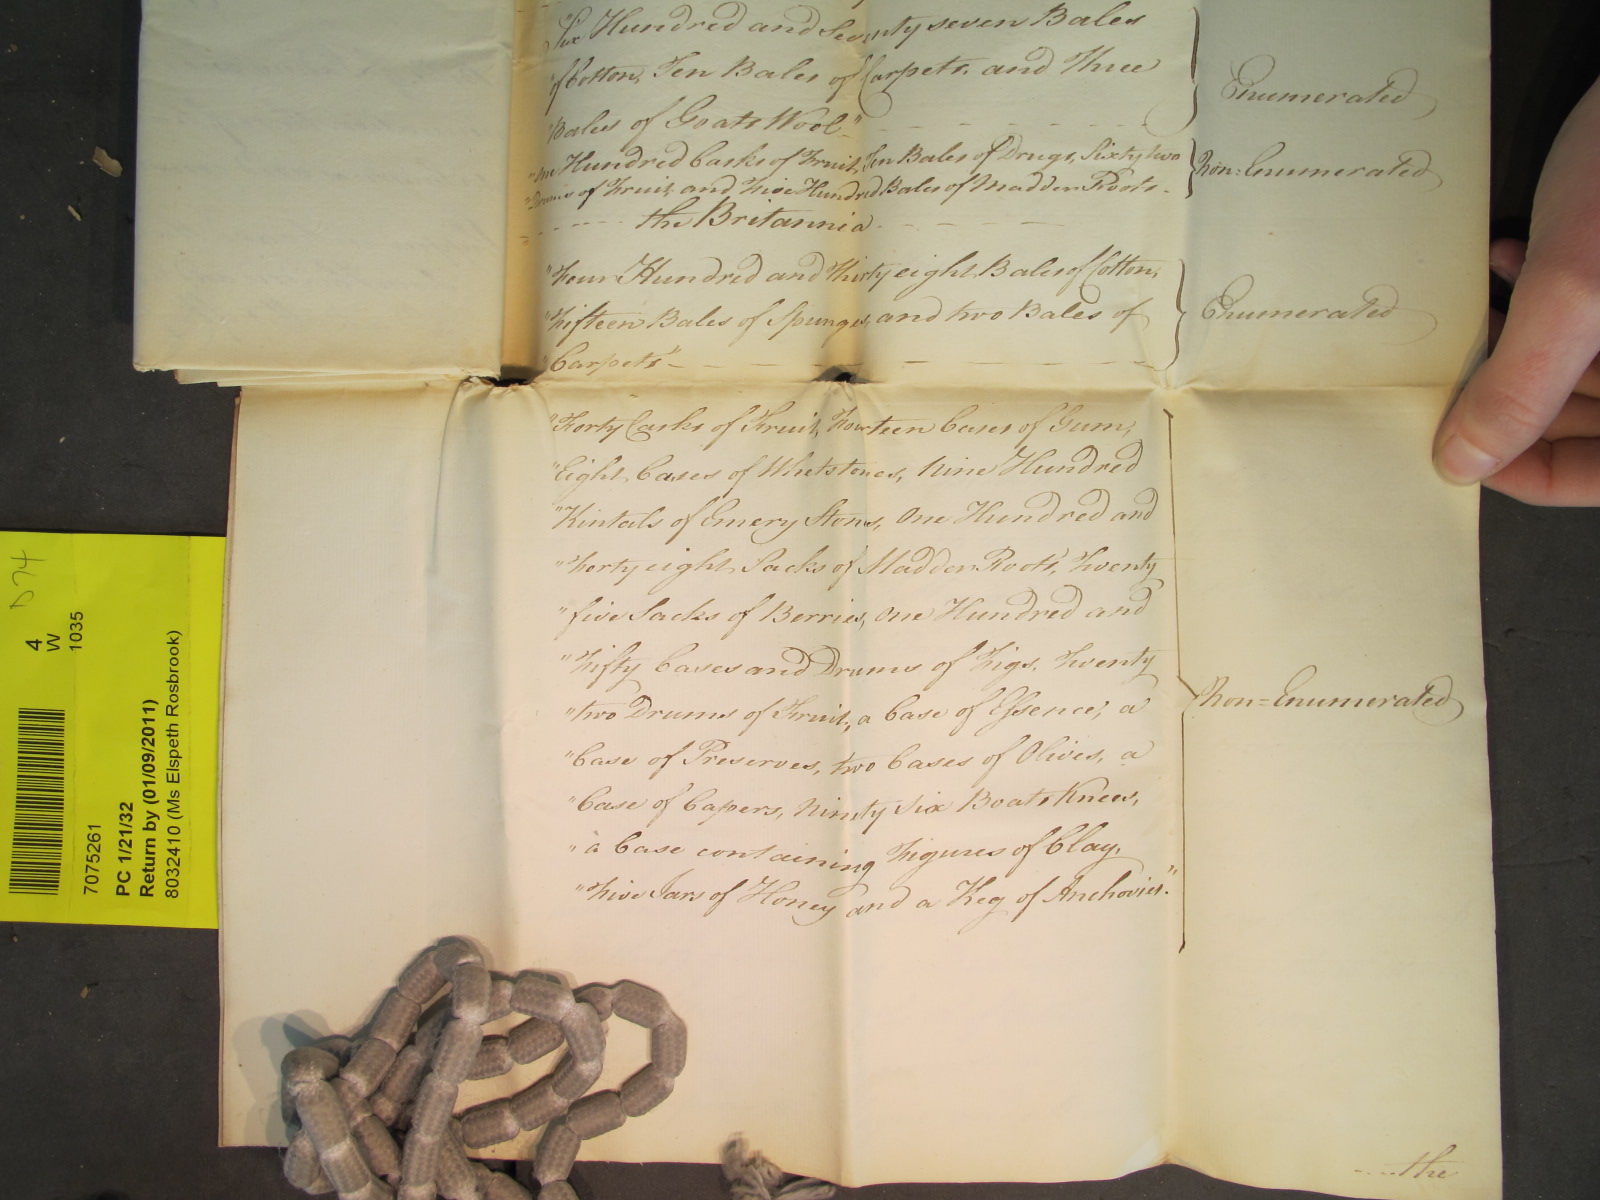 "Six Hundred and Seventy seven Bales
"of Cotton, Ten Bales of Carpets, and Three
"Bales of Goats Wool" - - - - - - - -
Enumerated
"One Hundred Casks of Fruit, Ten Bales of Drugs, Sixty two
"Drums of Fruit, and Five Hundred Bales of Madder Roots -
Non=Enumerated
- - - - - the Britannia - - - - -
"Four Hundred and Thirty eight Bales of Cotton,
"Fifteen Bales of Spunges, and two Bales of
"Carpets" - - - - - - - -
Enumerated
"Forty Casks of Fruit, Fourteen Cases of Gum,
"Eight Cases of Whetstones, Nine Hundred
"Kintals of Emery Stones, One Hundred and
"Forty eight Sacks of Madder Roots, Twenty
"five Sacks of Berries, One Hundred and
"Fifty Cases and Drums of Figs, Twenty
"two Drums of Fruit, a Case of Essence, a
"Case of Preserves, two Cases of Olives, a
"Case of Capers, Ninety Six Boats Knees,
"a Case containing Figures of Clay,
"Five Jars of Honey and a Keg of Anchovies."
Non=Enumerated
- - - the
D 74
4
W
1035
7075261
PC 1/21/32
Return by (01/09/2011)
8032410 (Ms Elspeth Rosbrook)